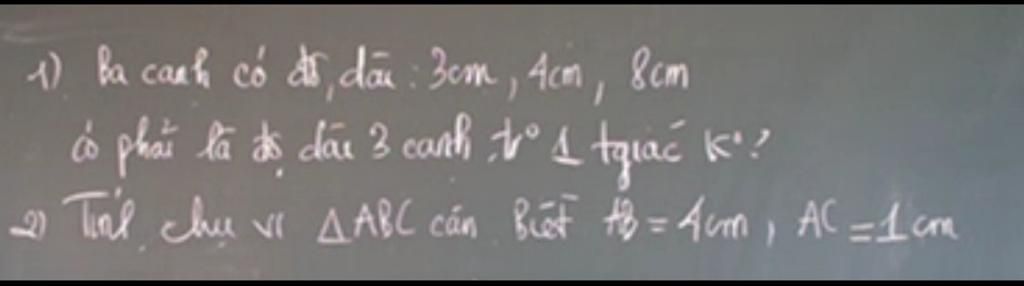 1) Ba cạnh có độ dài: 3cm, 4cm, 8cm
có phải là độ dài 3 cạnh tr° 1 tgiác K°?
2) Tính chu vi △ABC cân biết AB = 4cm, AC = 1cm